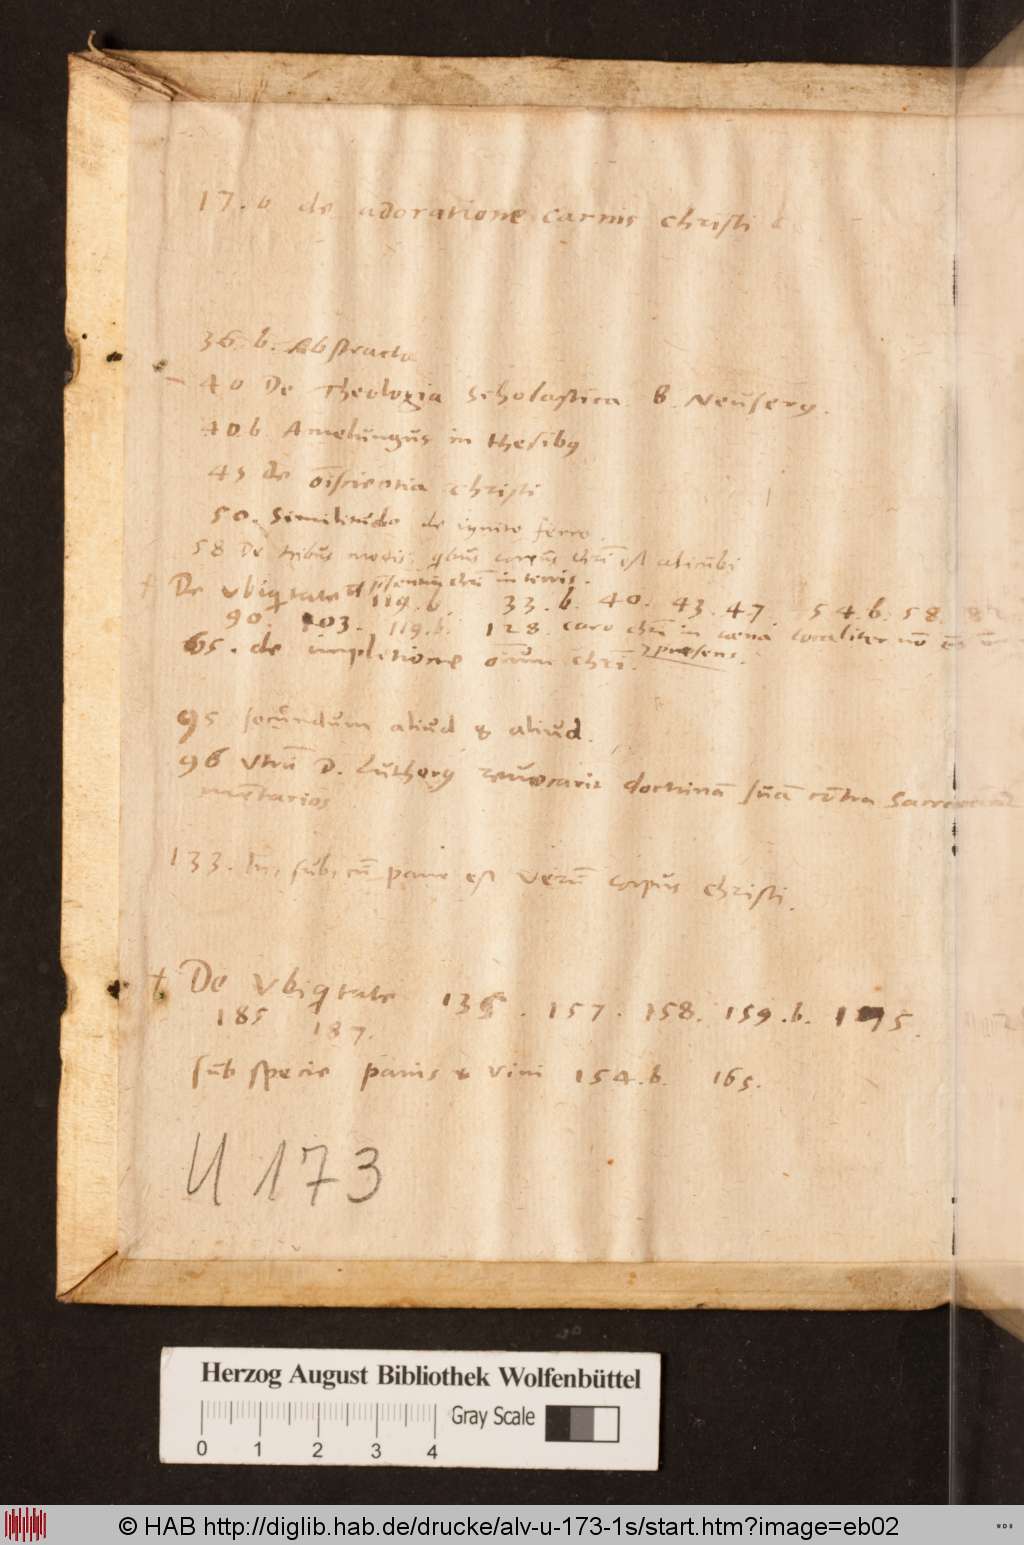 17.b de adoratione carnis christi
36.b. Abstracta
40 De Theologia Scholastica. B. Neuserg.
40.b. Amelungus in thesibus
45 de oīscientia christi
50. Similitudo de ignito ferro.
58 De tribus modis, qbus corpus chri est alicubi
De vbiqtate et pntia chri in terris.
119.b. 33.b. 40. 43. 47. 54.b. 58.
90. 103. 119.b. 128. caro chri in cæna localiter nō
65. de impletione oīum chri. præsens.
95 secundum aliud & aliud.
96 Vtrū D. Lutherg reuocarit doctrinā suā cōtra Sacra
mētarios
133. In, sub, cū pane est verū corpus christi.
† De Vbiqtate 136. 157. 158. 159.b. 175.
185 187.
sub specie panis & vini 154.b. 165.
U 173
Herzog August Bibliothek Wolfenbüttel
Gray Scale
0 1 2 3 4
© HAB http://diglib.hab.de/drucke/alv-u-173-1s/start.htm?image=eb02